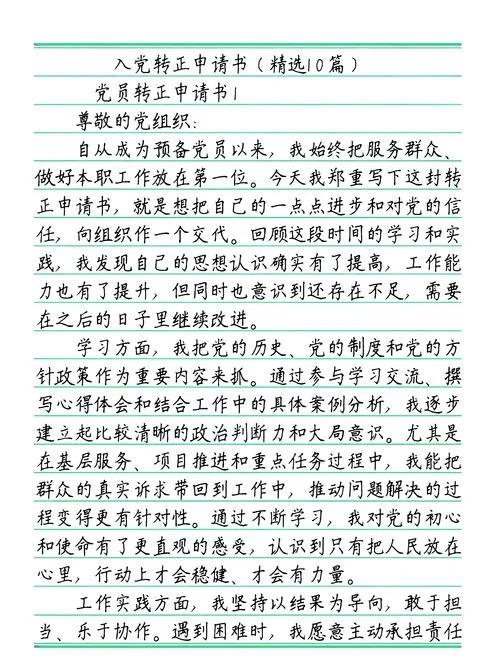 入党转正申请书（精选10篇）
党员转正申请书1
尊敬的党组织：
自从成为预备党员以来，我始终把服务群众、
做好本职工作放在第一位。今天我郑重写下这封转
正申请书，就是想把自己的一点点进步和对党的信
任，向组织作一个交代。回顾这段时间的学习和实
践，我发现自己的思想认识确实有了提高，工作能
力也有了提升，但同时也意识到还存在不足，需要
在之后的日子里继续改进。
学习方面，我把党的历史、党的制度和党的方
针政策作为重要内容来抓。通过参与学习交流、撰
写心得体会和结合工作中的具体案例分析，我逐步
建立起比较清晰的政治判断力和大局意识。尤其是
在基层服务、项目推进和重点任务过程中，我能把
群众的真实诉求带回到工作中，推动问题解决的过
程变得更有针对性。通过不断学习，我对党的初心
和使命有了更直观的感受，认识到只有把人民放在
心里，行动上才会稳健、才会有力量。
工作实践方面，我坚持以结果为导向，敢于担
当、乐于协作。遇到困难时，我愿意主动承担责任